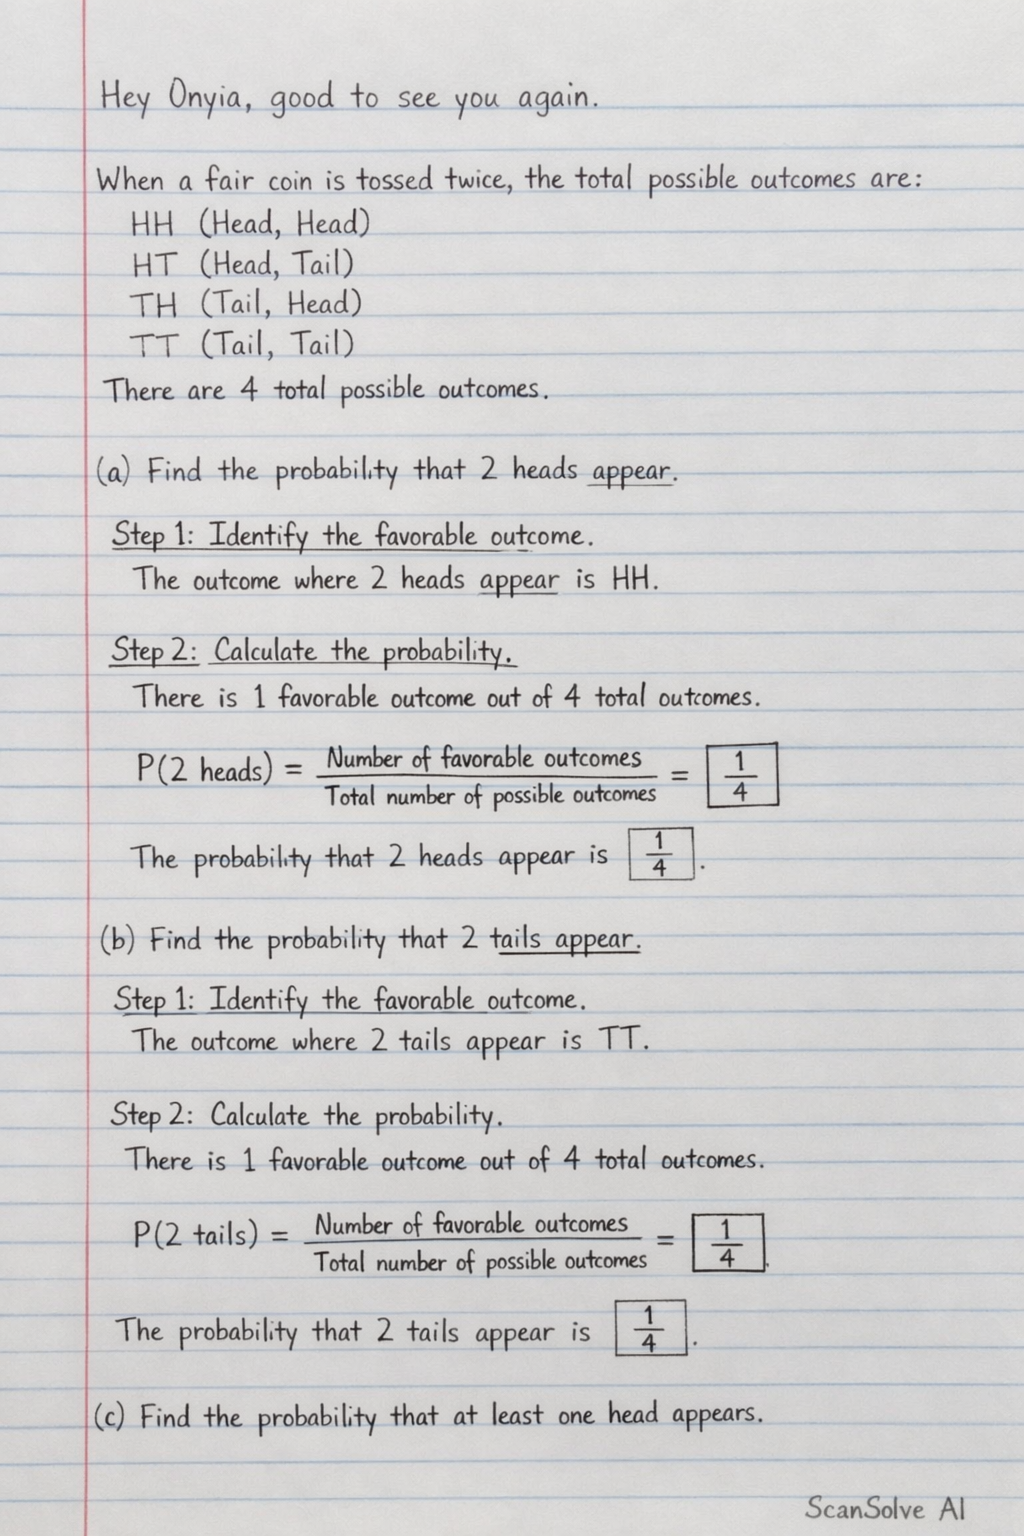 Hey Onyia, good to see you again.
When a fair coin is tossed twice, the total possible outcomes are:
HH (Head, Head)
HT (Head, Tail)
TH (Tail, Head)
TT (Tail, Tail)
There are 4 total possible outcomes.
(a) Find the probability that 2 heads appear.
Step 1: Identify the favorable outcome.
The outcome where 2 heads appear is HH.
Step 2: Calculate the probability.
There is 1 favorable outcome out of 4 total outcomes.
P(2 heads) = Number of favorable outcomes / Total number of possible outcomes = 1/4
The probability that 2 heads appear is 1/4.
(b) Find the probability that 2 tails appear.
Step 1: Identify the favorable outcome.
The outcome where 2 tails appear is TT.
Step 2: Calculate the probability.
There is 1 favorable outcome out of 4 total outcomes.
P(2 tails) = Number of favorable outcomes / Total number of possible outcomes = 1/4.
The probability that 2 tails appear is 1/4.
(c) Find the probability that at least one head appears.
ScanSolve AI